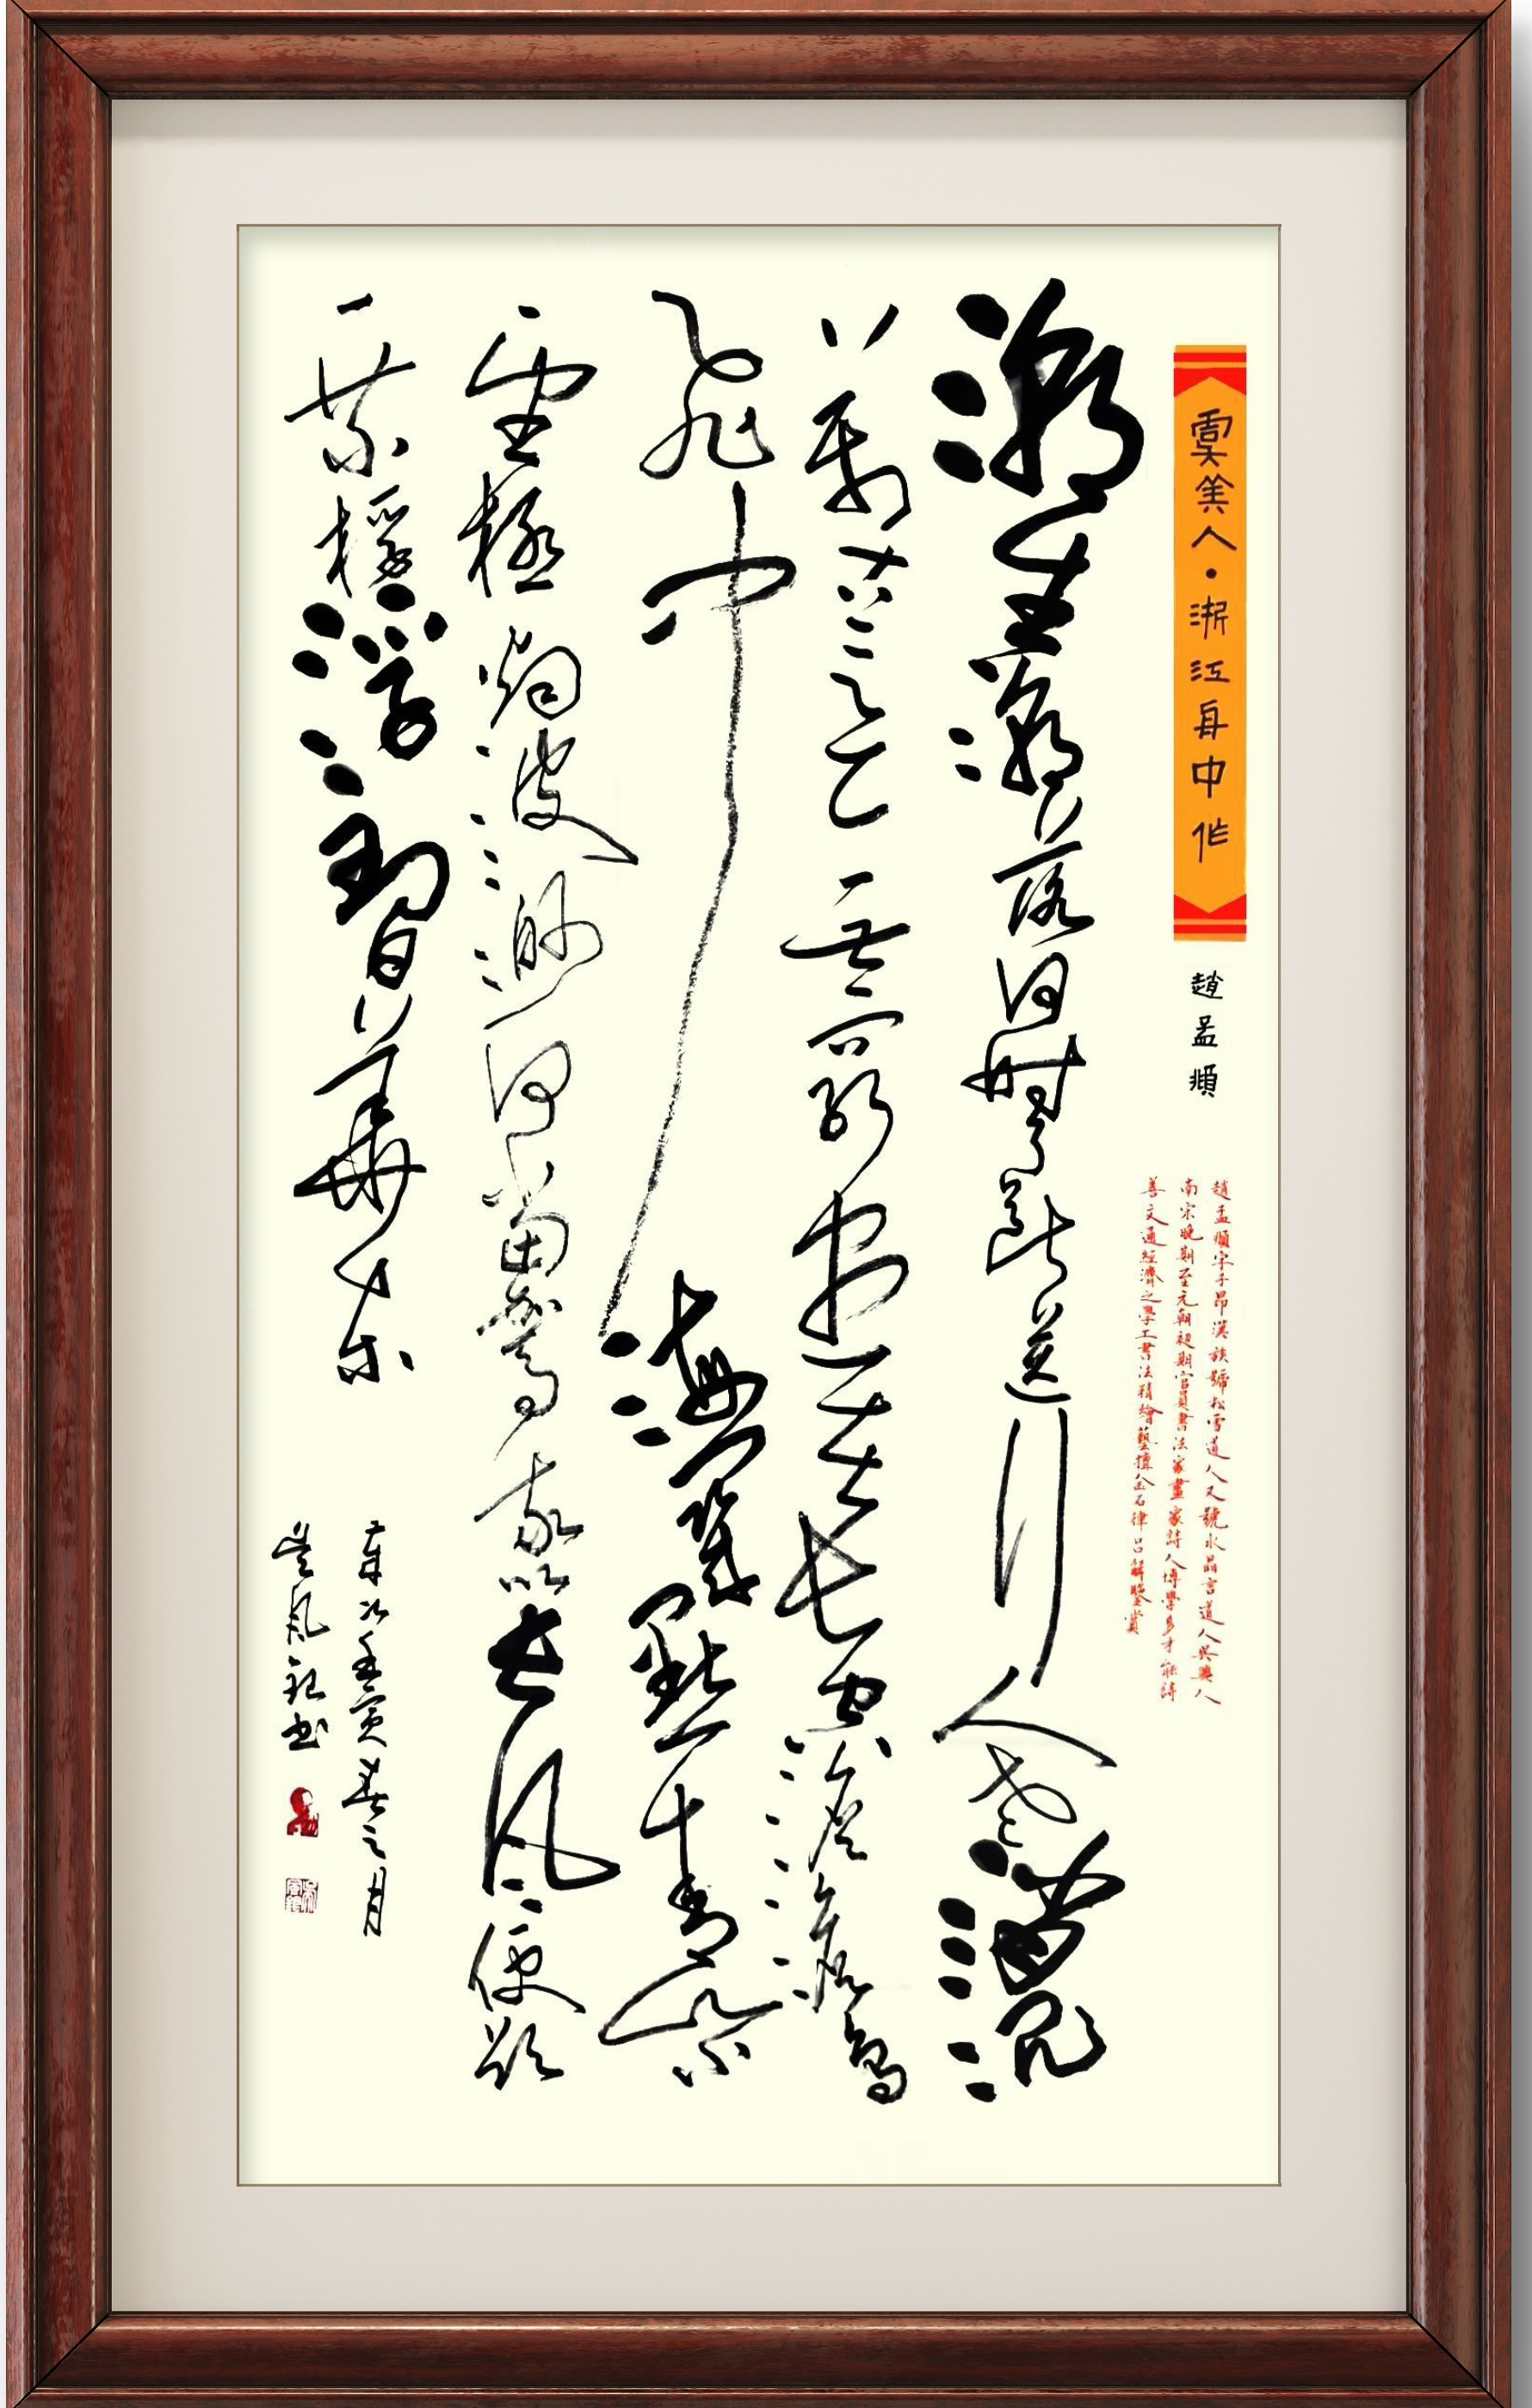 虞美人·浙江舟中作
趙孟頫
趙孟頫字子昂漢族號松雪道人又號水晶宮道人吳興人
南宋晚期至元朝初期官員書法家畫家詩人博學多才能詩
善文通經濟之學工書法精繪藝擅金石律呂解鑒賞
潮生潮落何時了斷送行人老消沉
萬古意無窮盡在長空澹澹鳥
飛中海門幾點青山小
望極烟波渺何當駕我以長風便欲
乘桴浮到日華東
歲次壬寅春之月